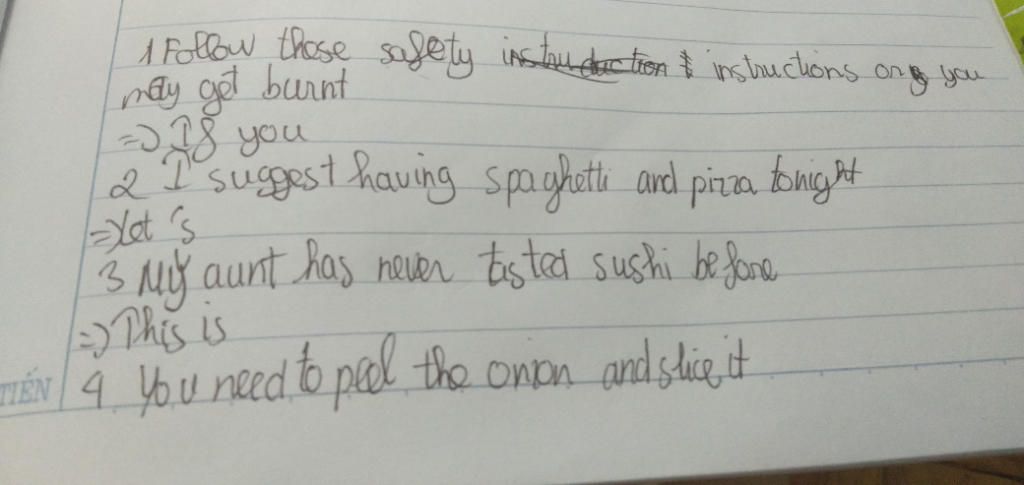 1 Follow those safety instruction instructions or you
may get burnt
=> If you
2 I suggest having spaghetti and pizza tonight
=> Let's
3 My aunt has never tasted sushi before
=> This is
4 You need to peel the onion and slice it
TIẾN